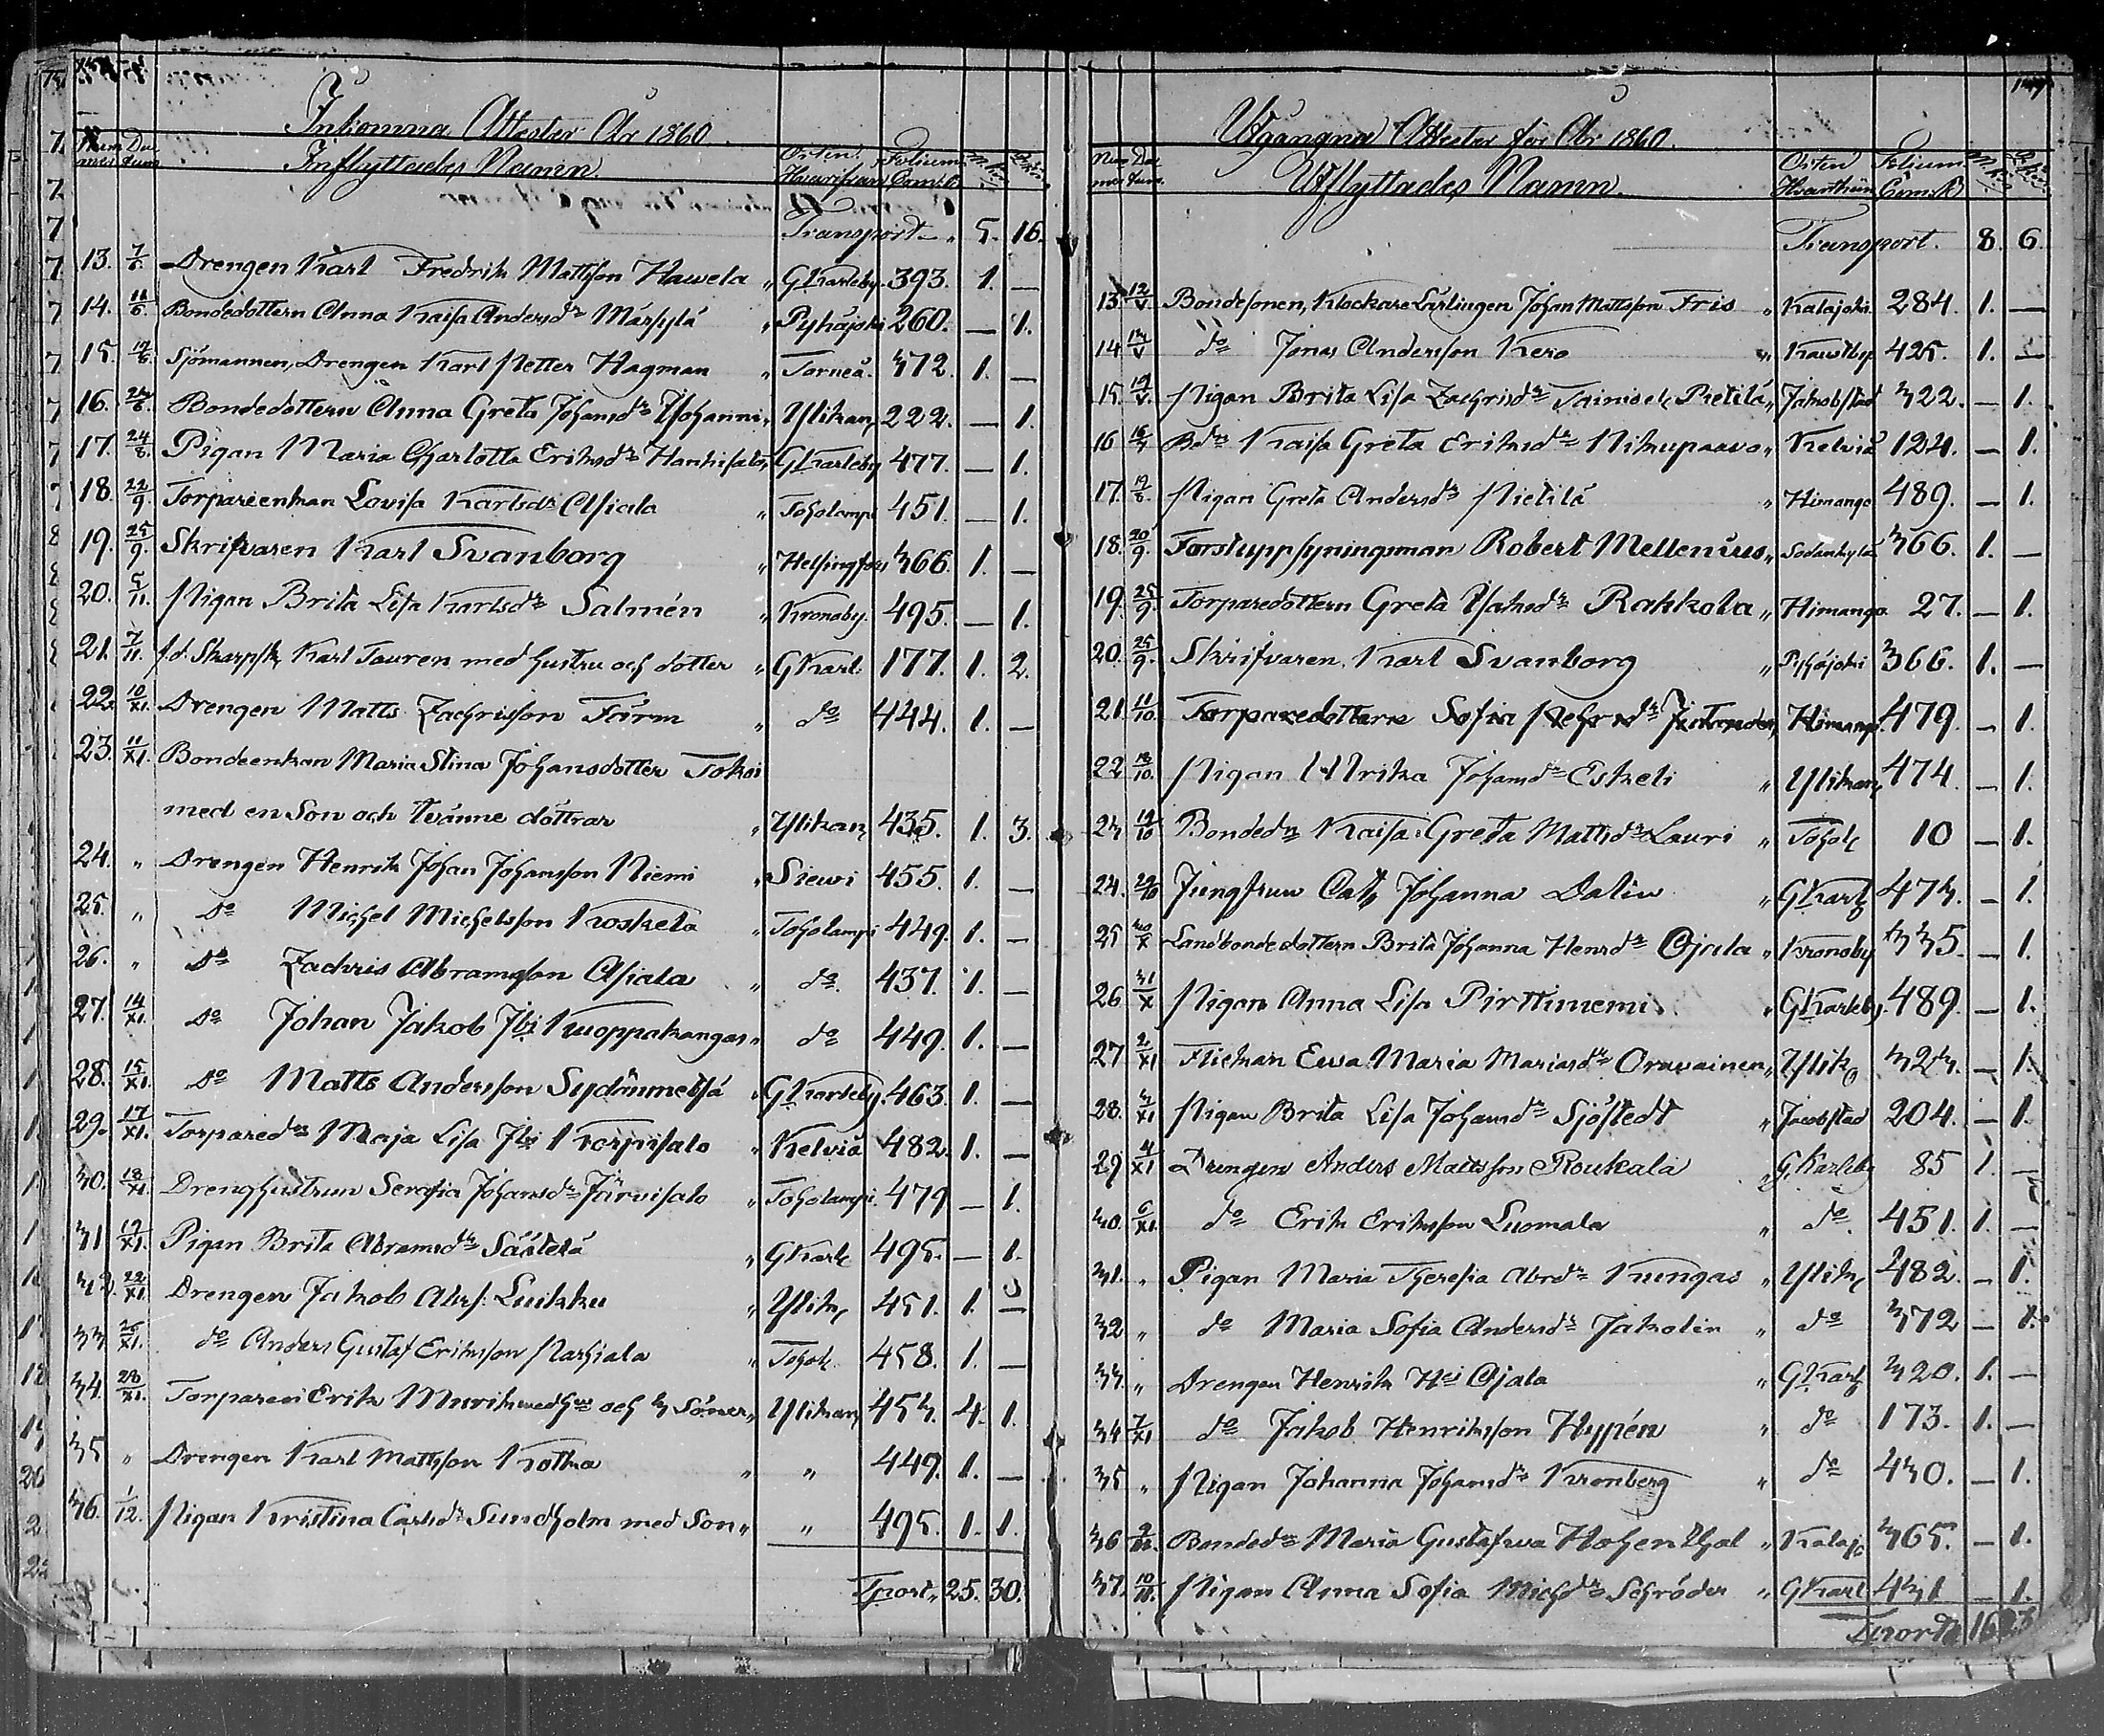 Inkomna Attester År 1860.
Num mer Da tum Inflyttades Namn. Orten Hvarifrån Folium Com.B. M.kön Q.kön
Transport 5. 16.
13. 7/6. Drengen Karl Fredrik Mattsson Hawela " GKarleby. 393. 1. —
14. 11/6. Bondedottern Anna Kaisa Andersdr Märsylä " Pyhäjoki 260. — 1.
15. 12/6. Sjömannen, Drengen Karl Petter Hagman " Torneå. 372. 1. —
16. Bondedottern Anna Greta Johansdr Yohanni " Ylikan, 222. — 1.
17. 24/8. Pigan Maria Charlotta Eriksdr Hankisalo, GKarleby 477. — 1.
18. 22/9. Torpareenkan Lovisa Karlsdr Asiala " Toholampi 451. — 1.
19. 25/9. Skrifvaren Karl Svanborg " Helsingfors 366. 1. —
20. 5/11. Pigan Brita Lisa Karlsdr Salmén " Kronoby. 495. — 1.
21. 7/11. f.d. Skarpsk, Karl Tauren med hustru och dotter " GKarl. 177. 1. 2.
22. 10/XI. Drengen Matts Zachrisson Färm " do 444. 1. —
23. 11/XI. Bondeenkan Maria Stina Johansdotter Tokoi
med en Son och tvänne döttrar " Ylikan, 435. 1. 3.
24. " Drengen Henrik Johan Johansson Niemi " Siewi 455. 1. —
25. " Do Michel Michelsson Koskela " Toholampi 449. 1. —
26. " Do Zachris Abramsson Asiala " do. 437. 1. —
27. 14/XI. Do Johan Jakob Jbi Kuoppakangas " do 449. 1. —
28. 15/XI. Do Matts Andersson Sydänmetsä " GKarleby. 463. 1. —
29. 17/XI. Torparedr Maja Lisa Jbi Korpisalo " Kelviå 482. 1. —
30. 18/XI. Drenghustrun Serafia Johansdr Järvisalo " Toholampi. 479 — 1.
31 19/XI. Pigan Brita Abramsdr Säätelä " GKarl, 495. — 1.
32. 22/XI. Drengen Jakob Abrs. Luikku " Ylik, 451. 1. —
33 26/XI. do Anders Gustaf Eriksson Parhiala " Tohol. 458. 1. —
34. 28/XI. Torparen Erik Murik med hu och 3 Söner " Ylikan, 453. 4. 1.
35 " Drengen Karl Mattsson Kotka " " 449. 1. —
36. 1/12. Pigan Kristina Carlsdr Sundholm med Son " " 495. 1. 1.
Tport. 25. 30.
Utgångna Attester för År 1860.
Num mer Da tum. Utflyttades Namn Orten Hvarthän Folium Com.B M.kön Q.kön
Transport. 8. 6.
13 12/V. Bondesonen, Klockare Lärlingen Johan Mattsson Fris " Kalajoki. 284. 1. —
14 13/V do Jonas Andersson Kero " Kaustby 425. 1. —
15. 19/V. Pigan Brita Lisa Zachrisdr Pietilä " Jakobstad 322. — 1.
16 Bdr Kaisa Greta Eriksdr Nikupaavo " Kelviå 124. — 1.
17. 19/8. Pigan Greta Andersdr Pietilä " Himango 489. — 1.
18. 20/9. Forstuppsyningsman Robert Mellenius " Sodankylä 366. 1. —
19. 25/9. Torparedottern Greta Isaksdr Rakkola " Himango. 27. — 1.
20. 25/9. Skrifvaren Karl Svanborg " Pyhäjoki 366. 1. —
21. 11/10. Torparedottern Sofia " Himango. 479. — 1.
22 18/10. Pigan Ulrika Johansdr Eskeli " Ylikan, 474 — 1.
23 19/10 Bondedr Kaisa Greta Mattsdr Lauri " Tohol, 10 — 1.
24. 29/10 Jungfrun Cath Johanna Dalin " GKarl, 473. — 1.
25 30/X Landbondedottern Brita Johanna Henrdr Ojala " Kronoby 335. — 1.
26 31/X Pigan Anna Lisa Pirttiniemi " GKarleby. 489. — 1.
27 2/XI Flickan Ewa Maria Mariasdr Oravainen " Ylik, 323. — 1.
28. 3/XI Pigan Brita Lisa Johansdr Sjöstedt " Jacobstad 204. — 1.
29 4/XI Drengen Anders Mattsson Roukala " G.Karleby 85 1. —
30. 6/XI. do Erik Eriksson Luomala " do. 451. 1. —
31. " Pigan Maria Theresia Abrdr Kungas " Ylik, 482. — 1.
32 " do Maria Sofia Andersdr Jakolin " do 372 — 1.
33. " Drengen Henrik Hsi Ojala " GKarl, 320. 1. —
34 7/XI do Jakob Henriksson Hypén " do 173. 1. —
35 " Pigan Johanna Johansdr Kronberg " do 430. — 1.
36 Bondedr Maria Gustafwa Hohenthal " Kalaj, 365. — 1.
37. Pigan Anna Sofia Michdr Schröder " GKarl. 431 — 1.
Tport.